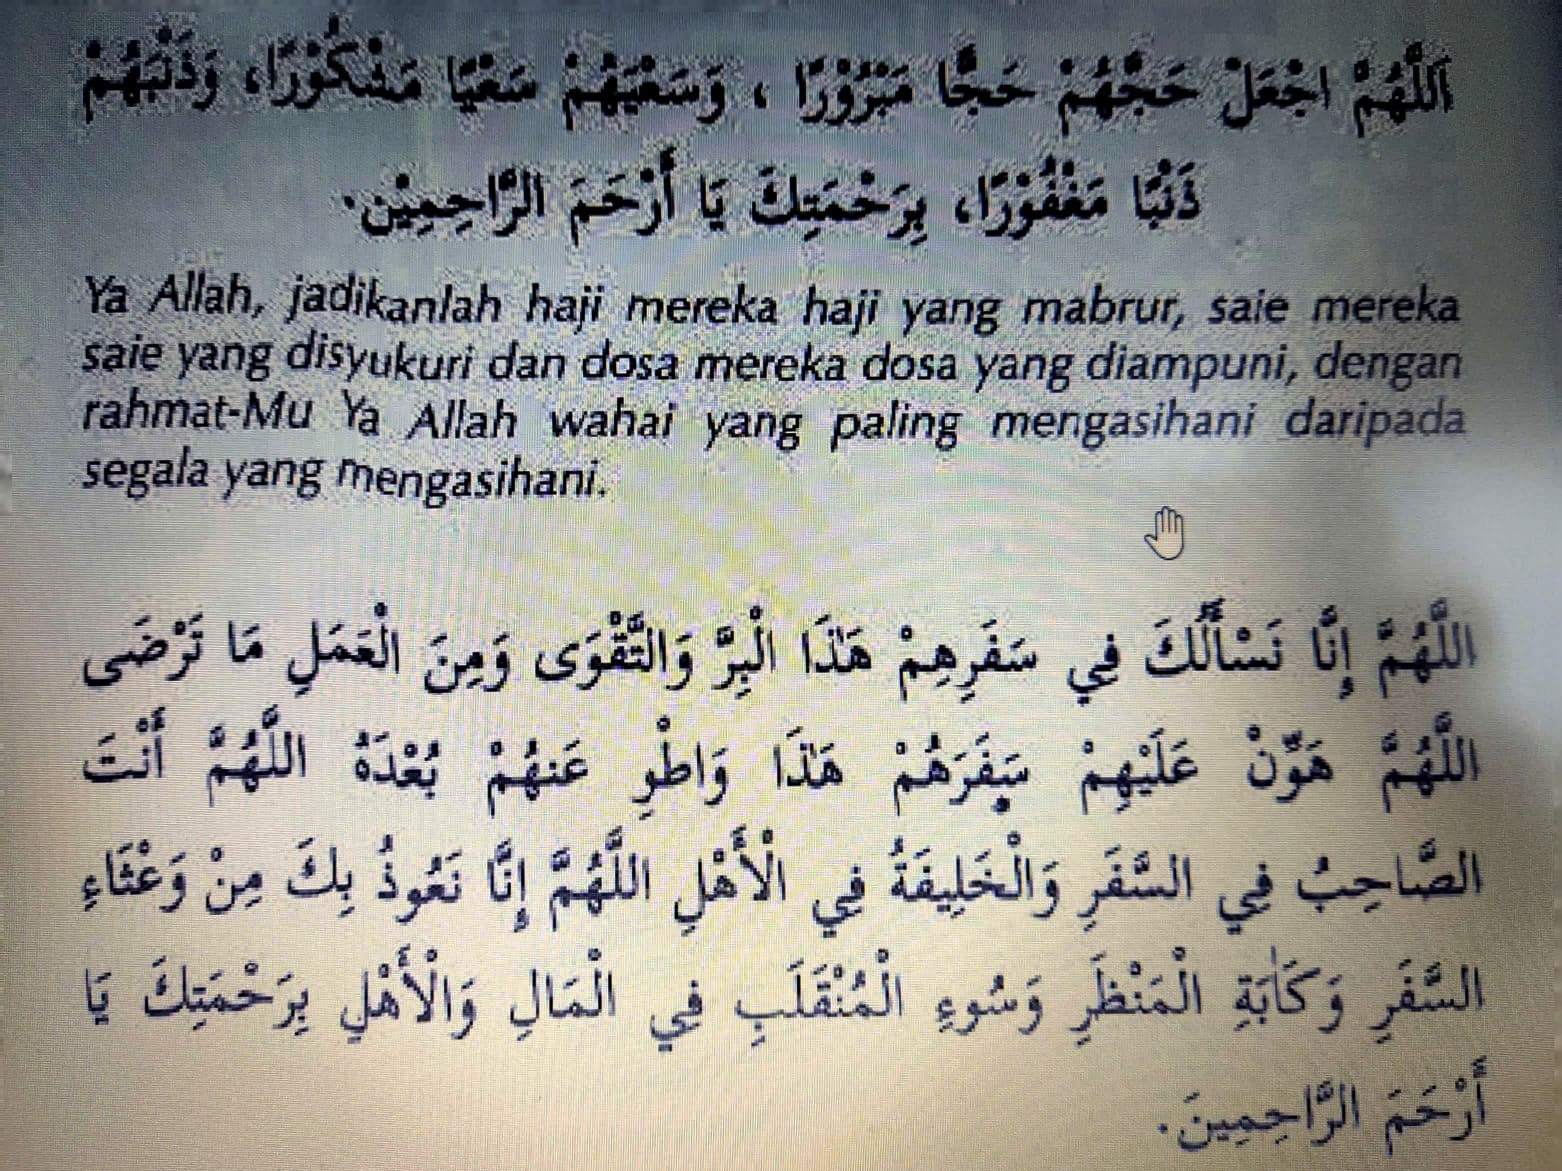 اَللَّهُمَّ اجْعَلْ حَجَّهُمْ حَجًّا مَبْرُوْرًا ، وَسَعْيَهُمْ سَعْيًا مَشْكُوْرًا، وَذَنْبَهُمْ
ذَنْبًا مَغْفُوْرًا، بِرَحْمَتِكَ يَا أَرْحَمَ الرَّاحِمِيْن.
Ya Allah, jadikanlah haji mereka haji yang mabrur, saie mereka
saie yang disyukuri dan dosa mereka dosa yang diampuni, dengan
rahmat-Mu Ya Allah wahai yang paling mengasihani daripada
segala yang mengasihani.
اللَّهُمَّ إِنَّا نَسْأَلُكَ فِي سَفَرِهِمْ هَٰذَا الْبِرَّ وَالتَّقْوَى وَمِنَ الْعَمَلِ مَا تَرْضَى
اللَّهُمَّ هَوِّنْ عَلَيْهِمْ سَفَرَهُمْ هَٰذَا وَاطْوِ عَنهُمْ بُعْدَهُ اللَّهُمَّ أَنْتَ
الصَّاحِبُ فِي السَّفَرِ وَالْخَلِيفَةُ فِي الْأَهْلِ اللَّهُمَّ إِنَّا نَعُوذُ بِكَ مِنْ وَعْثَاءِ
السَّفَرِ وَكَآبَةِ الْمَنْظَرِ وَسُوءِ الْمُنْقَلَبِ فِي الْمَالِ وَالْأَهْلِ بِرَحْمَتِكَ يَا
أَرْحَمَ الرَّاحِمِينَ.